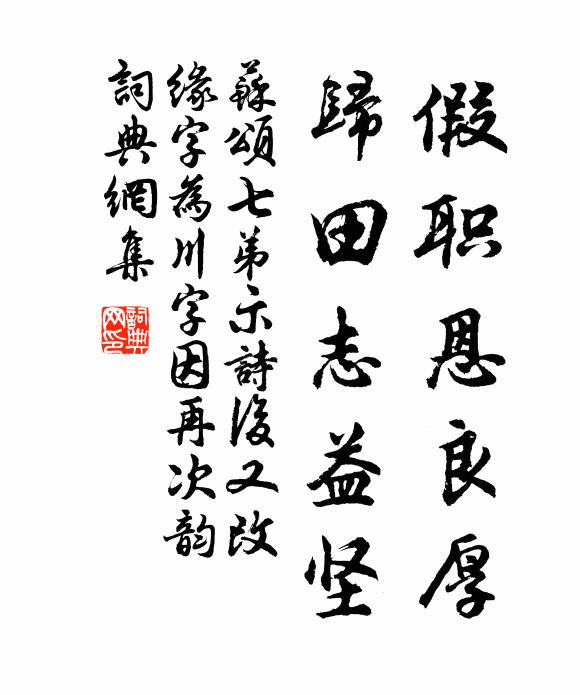 假职恩良厚
歸田志益坚
蘇頌七弟示詩後又改
緣字為川字因再次韵
詞典網集
詞典网印